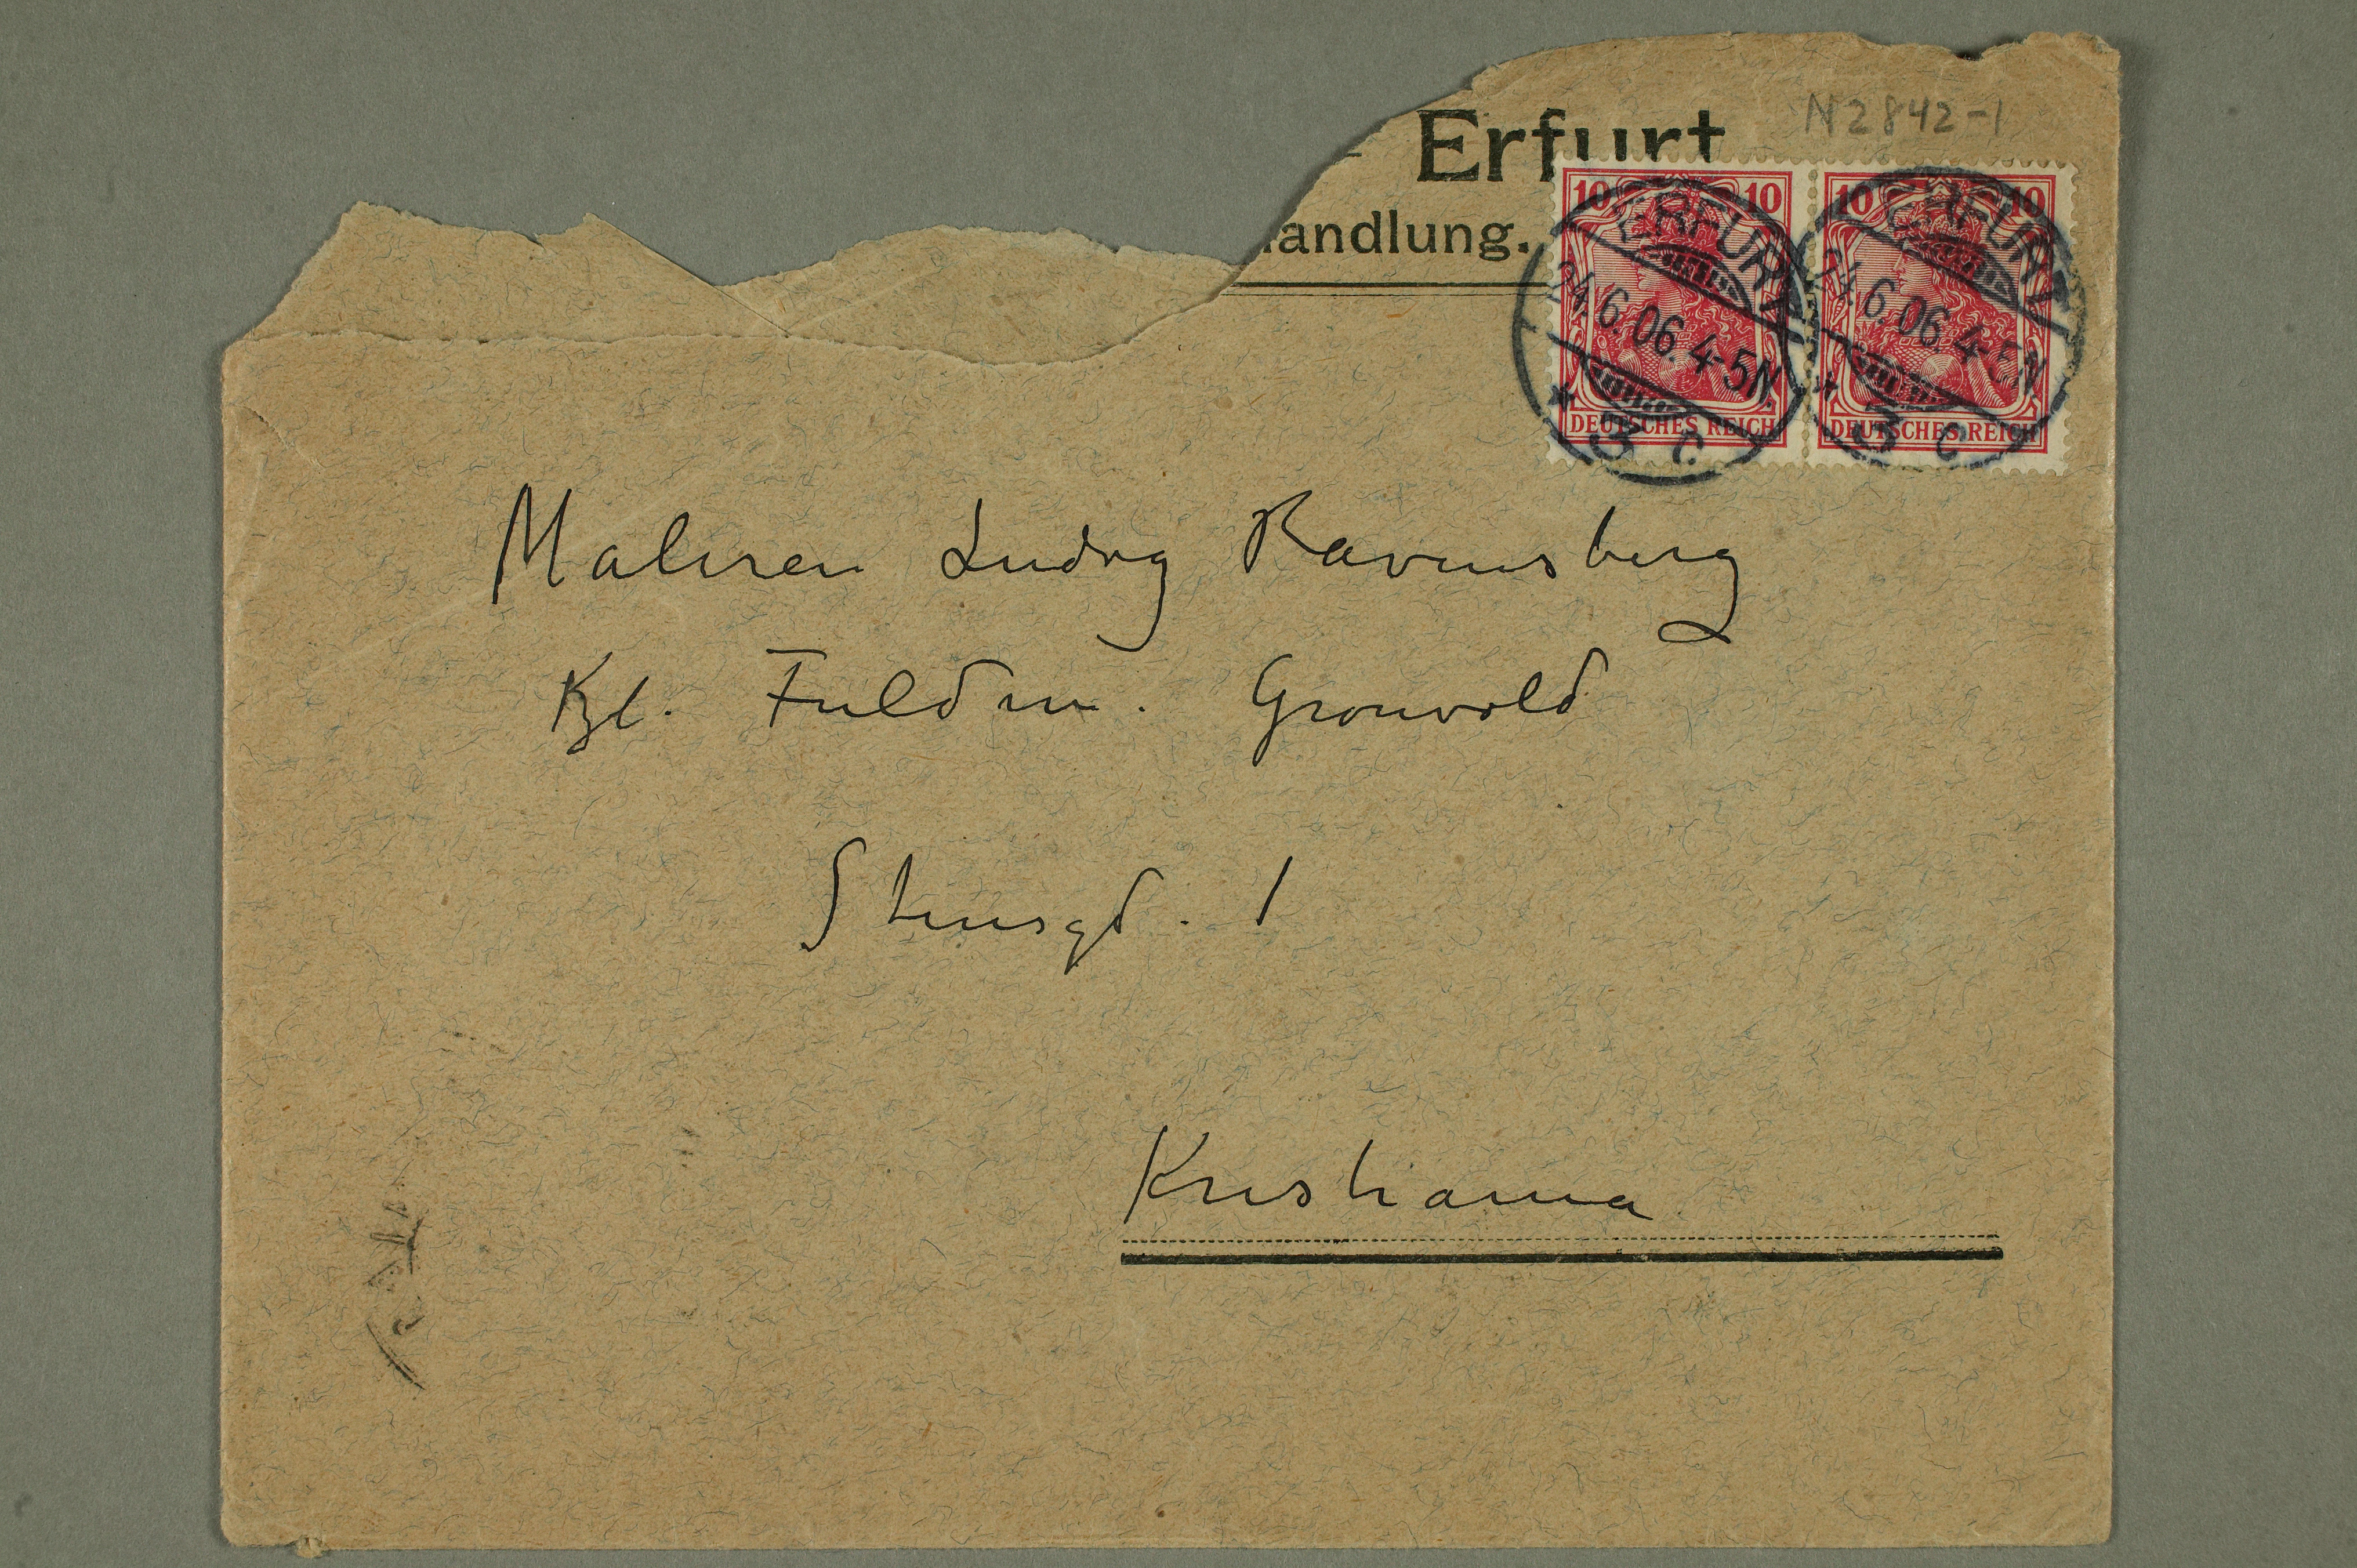 N2842-1
Erfurt
andlung.
10 10 10 10
ERFURT ERFURT
24.6.06.4-5N. 24.6.06.4-5N.
* 3 c. * 3 c.
DEUTSCHES REICH DEUTSCHES REICH
Maleren Ludvig Ravensberg
Fuldm. Grønvold
Stensgd. 1
Kristiania